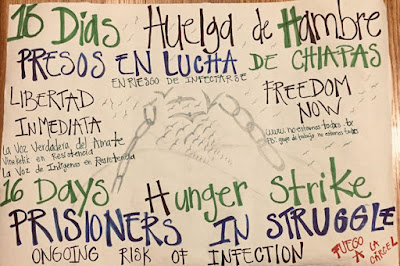 16 Días Huelga de Hambre
PRESOS EN LUCHA DE CHIAPAS
EN RIESGO DE INFECTARSE
LIBERTAD
INMEDIATA
La Voz Verdadera del Amate
Viniketik en Resistencia
La Voz de Indígenas en Resistencia
FREEDOM
NOW
www.noestamostodxs.tk
FB: grupo de trabajo no estamos todxs
16 Days Hunger Strike
PRISONERS IN STRUGGLE
ONGOING RISK OF INFECTION
FUEGO
A LA
CÁRCEL